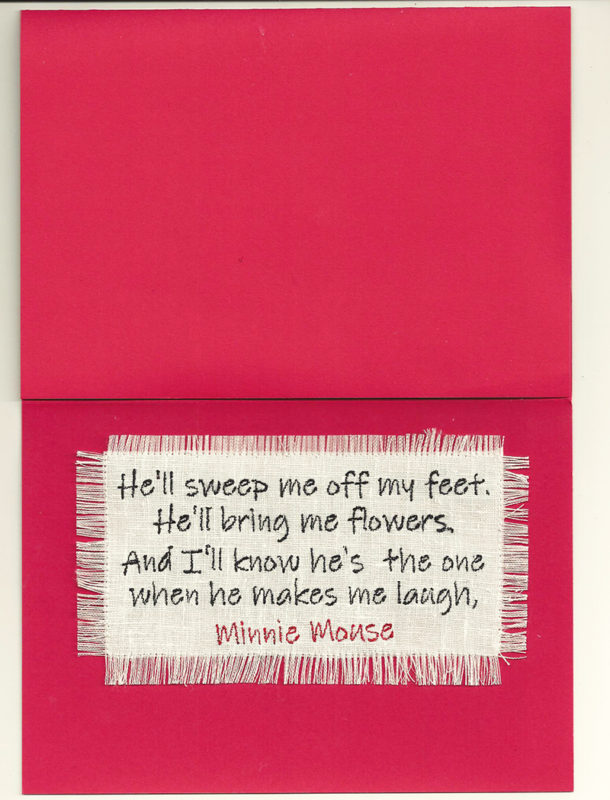 He'll sweep me off my feet.
He'll bring me flowers.
And I'll know he's the one
when he makes me laugh,
Minnie Mouse